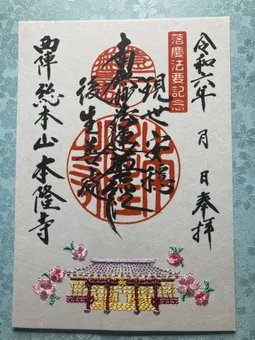 落慶法要記念
令和六年 月 日 奉拝
現世安穏
南無妙法蓮華経
後生善処
西陣 総本山 本隆寺